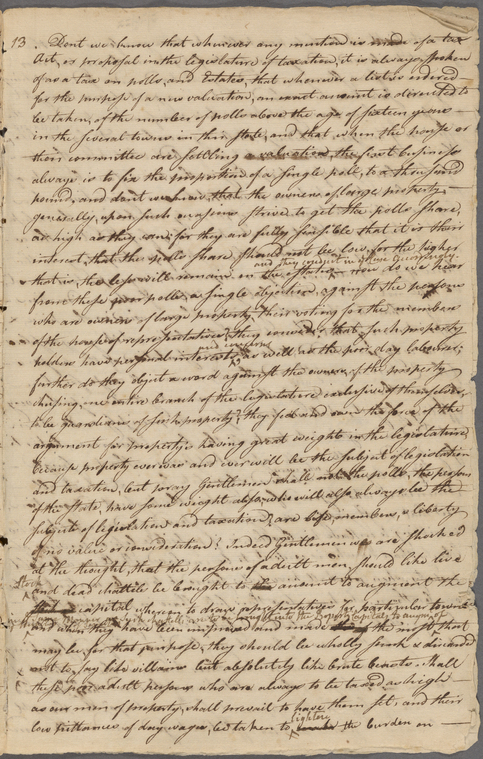 13. Dont we know that whenever any mention is made of a tax
Act, or proposal in the legislature of taxation, it is always spoken
of as a tax on polls, and Estates, that whenever a list is ordered
for the purpose of a new valuation, an exact account is directed to
be taken, of the number of polls above the age of sixteen years
in the several towns in this state, and that, when the house or
their committee are settling a valuation, the first business
always is to fix the proportion of a single poll, to a thousand
pound, and dont we know, that the owners of large property
generally, upon such occasions strive to get the polls share,
as high as they can, for they are fully sensible that it is their
interest, that the polls share should not be low, for the higher
and they conduct in it accordingly
that is, the less will remain on the estates. now do we hear
from these poor polls, a single objection, against the persons
who are owners of large property, their voting for the members
of the house of representatives, they concede, that, such property
and concerns
holders have personal interests, as well as the poor day labourer,
further do they object a word against the owners of the property
chusing, one entire branch of the legislature exclusive of themselves,
to be guardians of such property, they feel and own the force of the
argument for property's having great weight in the legislature
because property ever was and ever will be the subject of legislation
and taxation, but pray Gentlemen shall not the polls, the persons
of the state, have some weight also, who will also always be the
subjects of legislation and taxation, are life, members, & liberty
of no value or consideration? Indeed Gentlemen we are shocked
at the thought, that the persons of adult men, should like live
Stock
and dead chattels be brought to account to augment the
capital whereon to draw representatives for particular towns
and when they have been improved and made the most that
may be, for that purpose, they should be wholly sunk & discarded
not to say like villains but absolutely like brute beasts. Shall
these poor adult persons who are always to be taxed as high
as our men of property, shall prevail to have them set, and their
low pittances of day wages, be taken to
lighten
the burden on